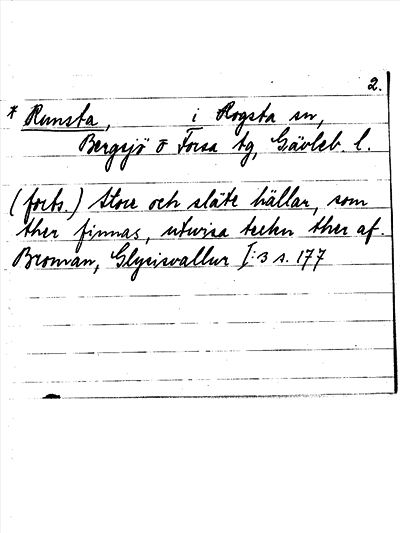 2.
* Runsta, i Rogsta sn,
Bergsjö o Forsa tg, Gävleb. l.
(forts.) store och släte hällar, som
ther finnas, utwisa tecken ther af.
Broman, Glysisvallur I:3 s. 177